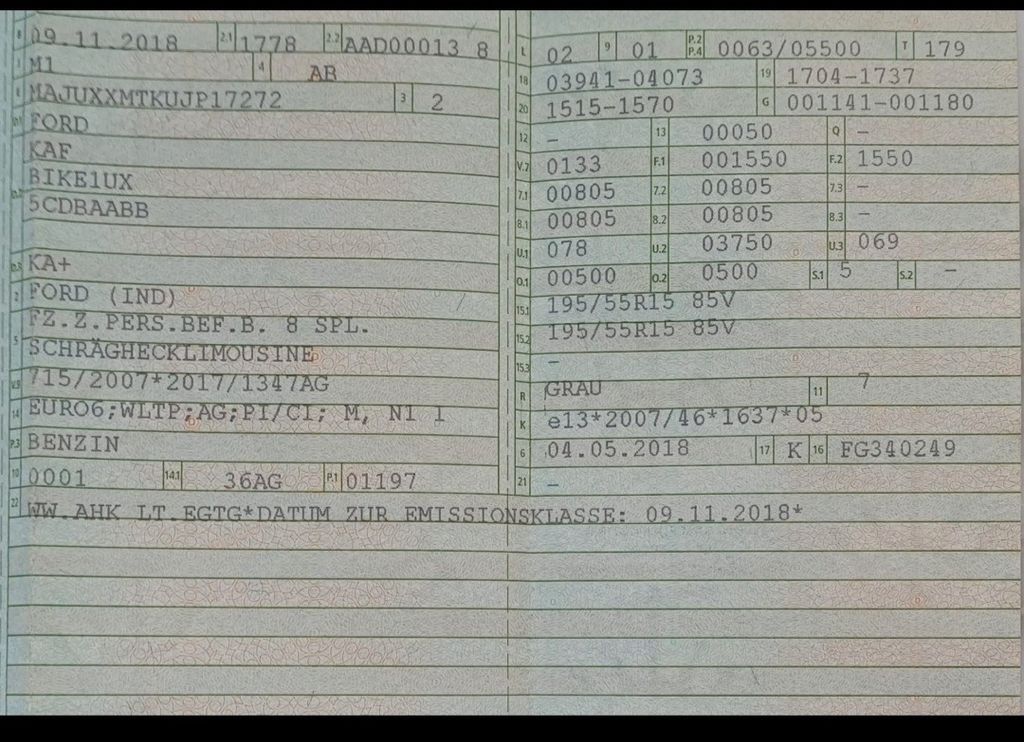 B 09.11.2018 2.1 1778 2.2 AAD00013 8
J M1 4 AB
E MAJUXXMTKUJP17272 3 2
D.1 FORD
KAF
D.2 BIKE1UX
5CDBAABB
D.3 KA+
2 FORD (IND)
FZ.Z.PERS.BEF.B. 8 SPL.
5 SCHRÄGHECKLIMOUSINE
V.9 715/2007*2017/1347AG
14 EURO6;WLTP;AG;PI/CI; M, N1 I
P.3 BENZIN
10 0001 14.1 36AG P.1 01197
L 02 9 01 P.2 P.4 0063/05500 T 179
18 03941-04073 19 1704-1737
20 1515-1570 G 001141-001180
12 – 13 00050 Q –
V.7 0133 F.1 001550 F.2 1550
7.1 00805 7.2 00805 7.3 –
8.1 00805 8.2 00805 8.3 –
U.1 078 U.2 03750 U.3 069
O.1 00500 O.2 0500 S.1 5 S.2 –
15.1 195/55R15 85V
15.2 195/55R15 85V
15.3 –
R GRAU 11 7
K e13*2007/46*1637*05
6 04.05.2018 17 K 16 FG340249
21 –
22 WW.AHK LT.EGTG*DATUM ZUR EMISSIONSKLASSE: 09.11.2018*